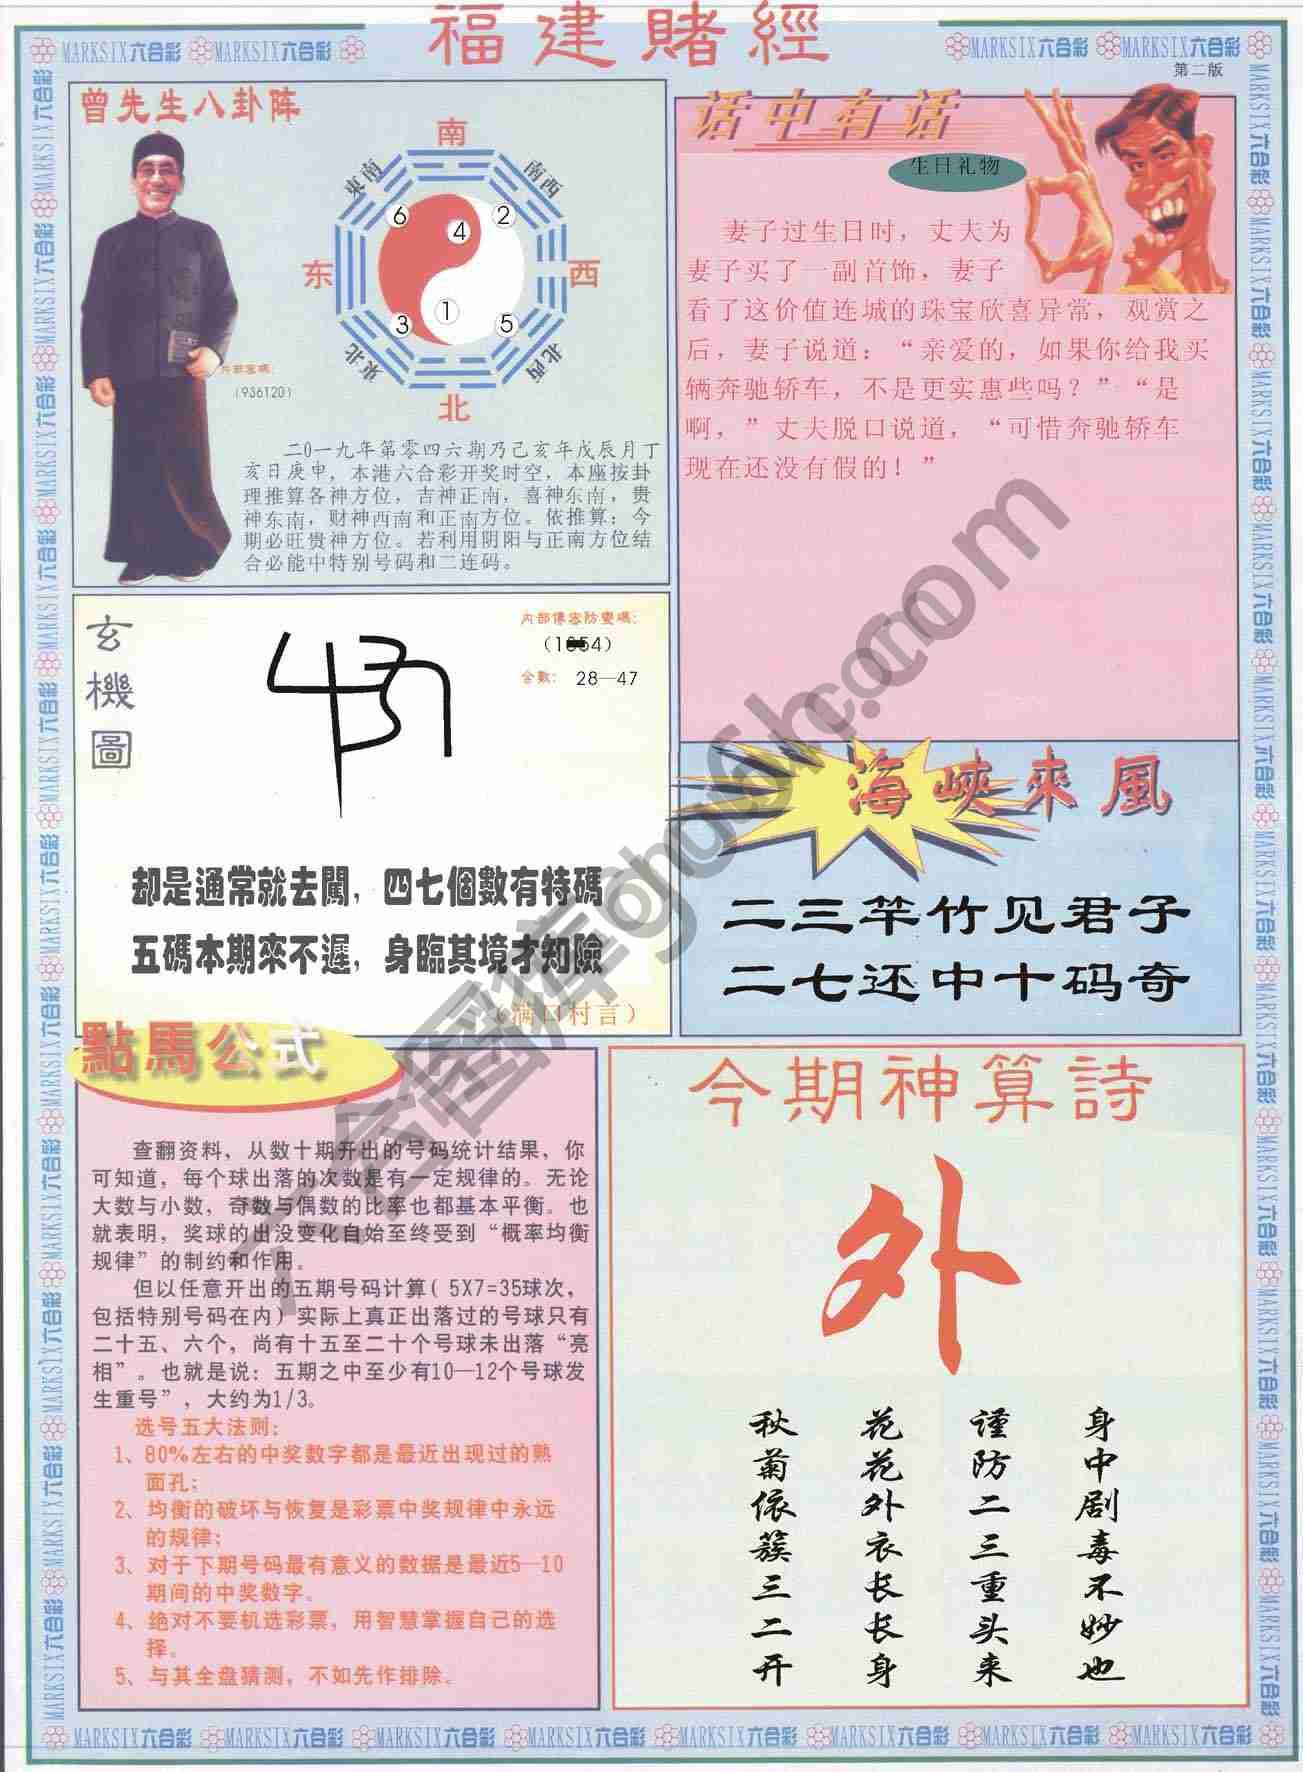 福建賭經
MARKSIX六合彩 MARKSIX六合彩
MARKSIX六合彩 MARKSIX六合彩
第二版
曾先生八卦阵
南
東南
南西
6
4
2
东
西
3
1
5
東北
北西
北
内部密碼：
（936120）
二0一九年第零四六期乃己亥年戊辰月丁
亥日庚申，本港六合彩开奖时空，本座按卦
理推算各神方位，吉神正南，喜神东南，贵
神东南，财神西南和正南方位。依推算：今
期必旺贵神方位。若利用阴阳与正南方位结
合必能中特别号码和二连码。
话中有话
生日礼物
妻子过生日时，丈夫为
妻子买了一副首饰，妻子
看了这价值连城的珠宝欣喜异常，观赏之
后，妻子说道：“亲爱的，如果你给我买
辆奔驰轿车，不是更实惠些吗？”“是
啊，”丈夫脱口说道，“可惜奔驰轿车
现在还没有假的！”
玄機圖
内部傳密防變碼：
合數： 28—47
却是通常就去闖，四七個數有特碼
五碼本期來不遲，身臨其境才知險
（满口村言）
海峽來風
二三竿竹见君子
二七还中十码奇
點馬公式
查翻资料，从数十期开出的号码统计结果，你
可知道，每个球出落的次数是有一定规律的。无论
大数与小数，奇数与偶数的比率也都基本平衡。也
就表明，奖球的出没变化自始至终受到“概率均衡
规律”的制约和作用。
但以任意开出的五期号码计算（5X7=35球次，
包括特别号码在内）实际上真正出落过的号球只有
二十五、六个，尚有十五至二十个号球未出落“亮
相”。也就是说：五期之中至少有10—12个号球发
生重号”，大约为1/3。
选号五大法则：
1、80%左右的中奖数字都是最近出现过的熟
面孔；
2、均衡的破坏与恢复是彩票中奖规律中永远
的规律；
3、对于下期号码最有意义的数据是最近5—10
期间的中奖数字。
4、绝对不要机选彩票，用智慧掌握自己的选
择。
5、与其全盘猜测，不如先作排除。
今期神算詩
外
身中剧毒不妙也
谨防二三重头来
花花外衣长长身
秋菊依簇三二开
MARKSIX六合彩 MARKSIX六合彩 MARKSIX六合彩 MARKSIX六合彩 MARKSIX六合彩 MARKSIX六合彩 MARKSIX六合彩 MARKSIX六合彩